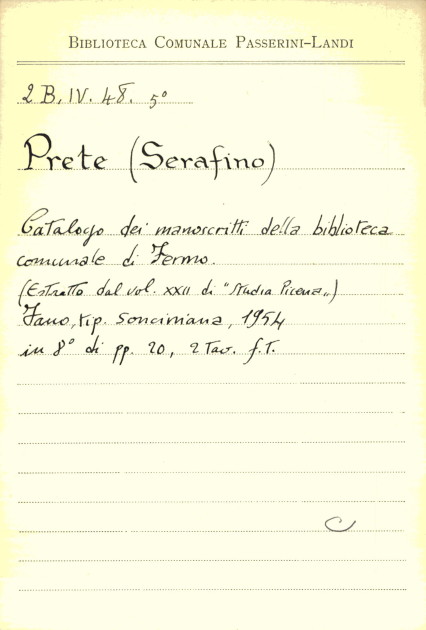 BIBLIOTECA COMUNALE PASSERINI-LANDI
2 B. IV. 48. 5°
Prete (Serafino)
Catalogo dei manoscritti della biblioteca
comunale di Fermo.
(Estratto dal vol. XXII di "Studia Picena„)
Fano, tip. Sonciniana, 1954
in 8° di pp. 20, 2 Tav. f.T.